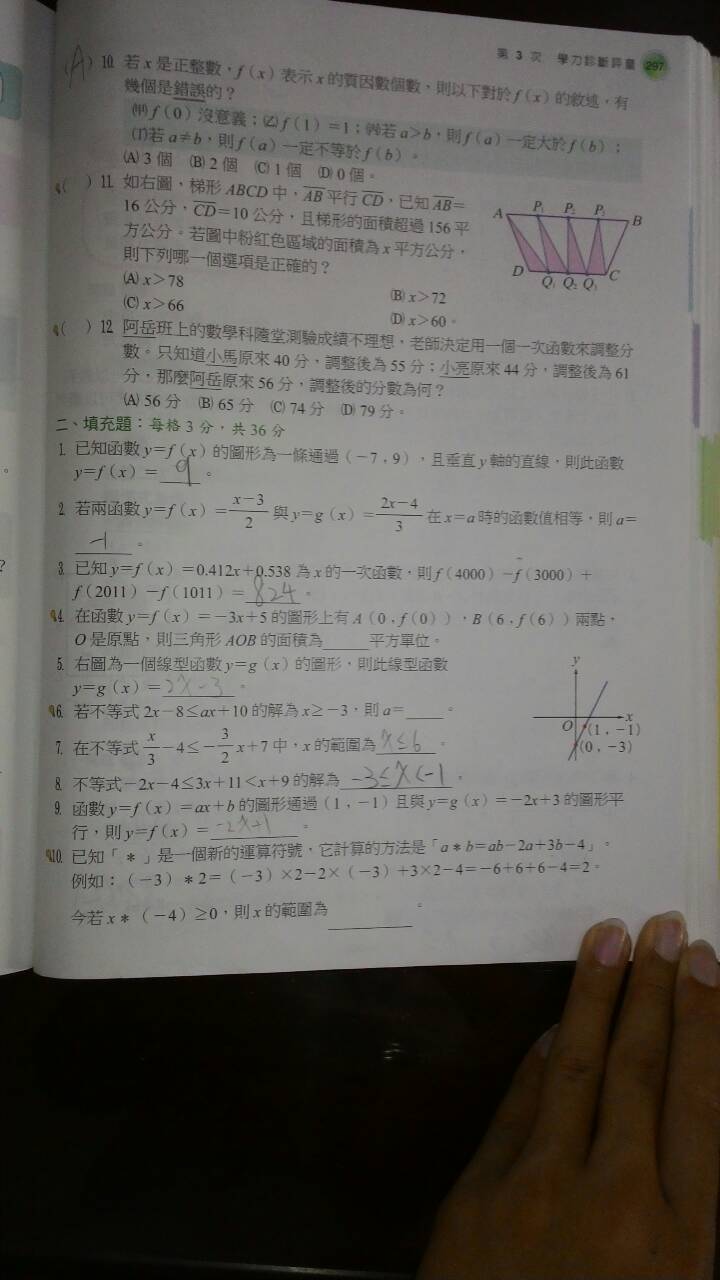 第 3 次 學力診斷評量 297
(A) 10. 若 x 是正整數，f（x）表示 x 的質因數個數，則以下對於 f（x）的敘述，有
幾個是錯誤的？
㈙ f（0）沒意義；㈚ f（1）＝1；㈛若 a＞b，則 f（a）一定大於 f（b）；
㈜若 a≠b，則 f（a）一定不等於 f（b）。
(A) 3 個 (B) 2 個 (C) 1 個 (D) 0 個。
( ) 11. 如右圖，梯形 ABCD 中，AB 平行 CD，已知 AB＝
16 公分，CD＝10 公分，且梯形的面積超過 156 平
方公分。若圖中粉紅色區域的面積為 x 平方公分，
則下列哪一個選項是正確的？
(A) x＞78 (B) x＞72
(C) x＞66 (D) x＞60。
A P₁ P₂ P₃ B
D Q₁ Q₂ Q₃ C
( ) 12. 阿岳班上的數學科隨堂測驗成績不理想，老師決定用一個一次函數來調整分
數。只知道小馬原來 40 分，調整後為 55 分；小亮原來 44 分，調整後為 61
分，那麼阿岳原來 56 分，調整後的分數為何？
(A) 56 分 (B) 65 分 (C) 74 分 (D) 79 分。
二、填充題：每格 3 分，共 36 分
1. 已知函數 y＝f（x）的圖形為一條通過（－7 , 9），且垂直 y 軸的直線，則此函數
y＝f（x）＝ 9 。
2. 若兩函數 y＝f（x）＝(x－3)/2 與 y＝g（x）＝(2x－4)/3 在 x＝a 時的函數值相等，則 a＝
-1 。
3. 已知 y＝f（x）＝0.412x＋0.538 為 x 的一次函數，則 f（4000）－f（3000）＋
f（2011）－f（1011）＝ 824 。
4. 在函數 y＝f（x）＝－3x＋5 的圖形上有 A（0 , f（0）），B（6 , f（6））兩點，
O 是原點，則三角形 AOB 的面積為＿＿＿平方單位。
5. 右圖為一個線型函數 y＝g（x）的圖形，則此線型函數
y＝g（x）＝ 2x-3 。
y
O x
(1 , －1)
(0 , －3)
6. 若不等式 2x－8≤ax＋10 的解為 x≥－3，則 a＝＿＿＿。
7. 在不等式 x/3－4≤－3/2 x＋7 中，x 的範圍為 x≤6 。
8. 不等式－2x－4≤3x＋11＜x＋9 的解為 -3≤x<-1 。
9. 函數 y＝f（x）＝ax＋b 的圖形通過（1 , －1）且與 y＝g（x）＝－2x＋3 的圖形平
行，則 y＝f（x）＝ -2x+1 。
10. 已知「＊」是一個新的運算符號，它計算的方法是「a＊b＝ab－2a＋3b－4」。
例如：（－3）＊2＝（－3）×2－2×（－3）＋3×2－4＝－6＋6＋6－4＝2。
今若 x＊（－4）≥0，則 x 的範圍為＿＿＿＿＿。